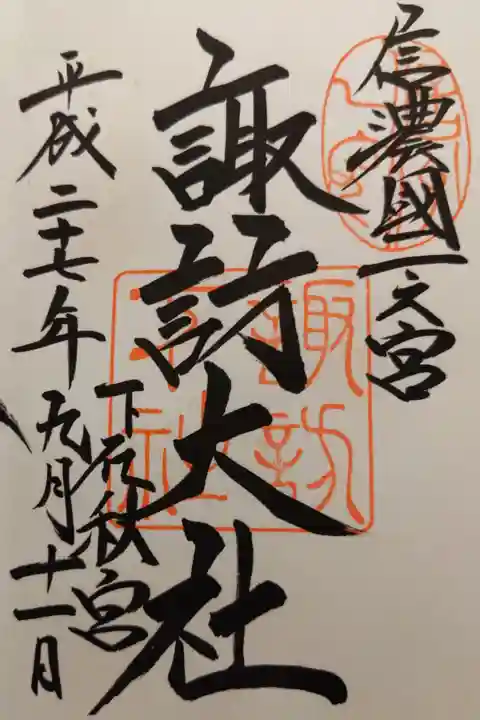 信濃國一之宮
諏訪大社
下社秋宮
平成二十七年九月十一日
諏訪